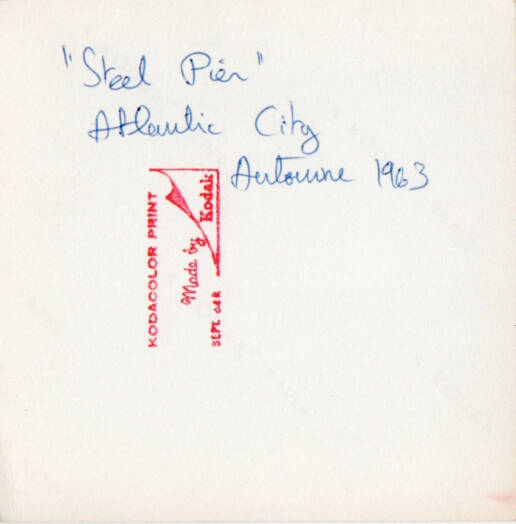 "Steel Pier"
Atlantic City
Automne 1963
KODACOLOR PRINT
Made by
Kodak
SEPT.